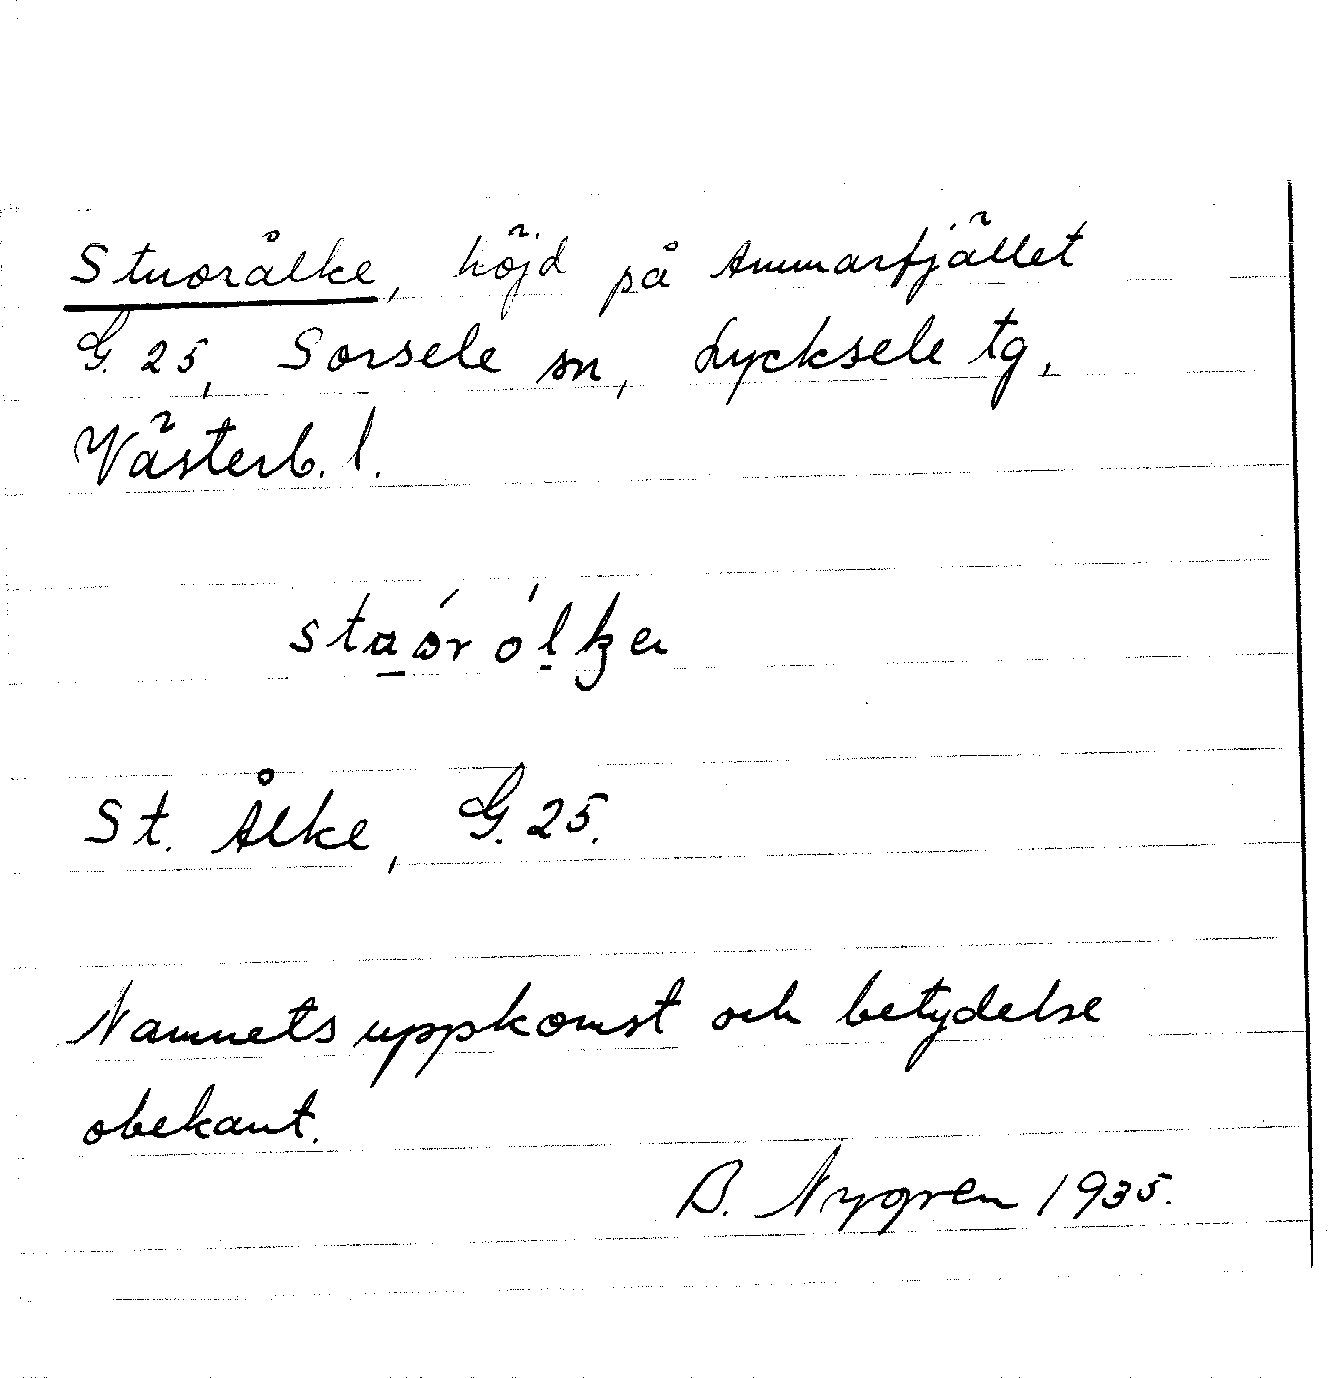 Stuorålke, höjd på Ammarfjället
G. 25, Sorsele sn, Lycksele tg,
Västerb. l.
St. Ålke, G. 25.
Namnets uppkomst och betydelse
obekant.
B. Nygren 1935.